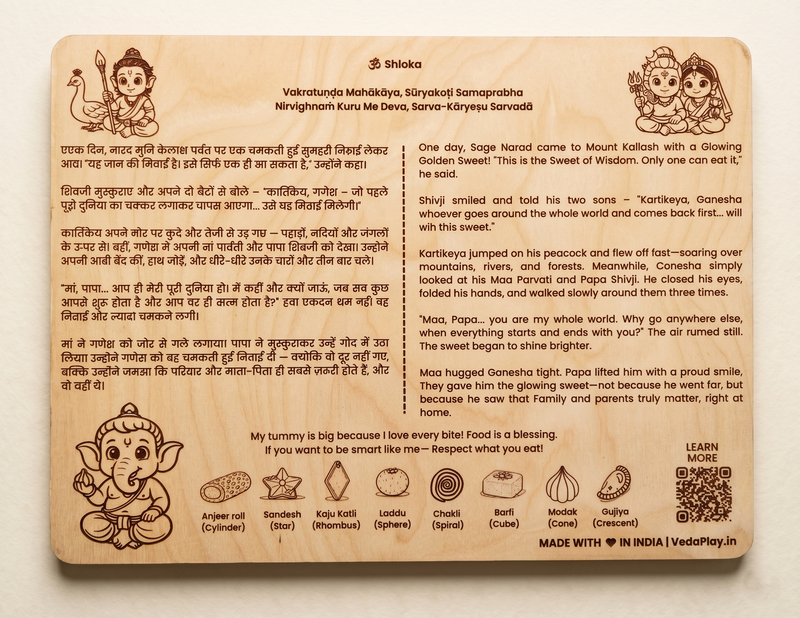 ॐ Shloka
Vakratuṇḍa Mahākāya, Sūryakoṭi Samaprabha
Nirvighnaṁ Kuru Me Deva, Sarva-Kāryeṣu Sarvadā
एएक दिन, नारद मुनि केलाश पर्वत पर एक चमकती हुई सुमहरी निठाई लेकर
आया। "यह जान की मिवाई है। इसे सिर्फ एक ही खा सकता है," उन्होंने कहा।
शिवजी मुस्कुराए और अपने दो बैटों से बोले – "कार्तिकेय, गणेश – जो पहले
पूरी दुनिया का चक्कर लगाकर वापस आएगा... उसे यड मिठाई मिलेगी।"
कार्तिकेय अपने मोर पर कुदे और तेजी से उड़ गछ — पहाड़ों, नदियों और जंगलों
के उ-पर से। बहीं, गणेश मे अपनी नां पार्वती और पापा शिबजी को देखा। उन्होने
अपनी आबी बेंद कीं, हाथ जोड़ें, और धीरे-धीरे उनके चारों और तीन बार चले।
"मां, पापा... आप ही मेरी पूरी दुनिया हो। में कहीं और क्यों जाऊं, जब सव कुछ
आपसे शुरू होता है और आप वर ही सत्म होता है?" हवा एकदन थम नही। वह
निवाई और ल्यादा चमकने लगी।
मां ने गणेश को जोर से गले लगाया। पापा ने मुस्कुराकर उन्हें गोद में उठा
लिया। उन्होने गणेस को बह चमकती हुई निताई दी — क्योकि वो दूर नहीं गए,
बक्कि उन्हीने जमझा कि परियार और माता-पिता ही सबसे ज़रूरी होते हैं, और
वो वहीं थे।
One day, Sage Narad came to Mount Kallash with a Glowing
Golden Sweet! "This is the Sweet of Wisdom. Only one can eat it,"
he said.
Shivji smiled and told his two sons – "Kartikeya, Ganesha
whoever goes around the whole world and comes back first... will
wih this sweet."
Kartikeya jumped on his peacock and flew off fast—soaring over
mountains, rivers, and forests. Meanwhile, Conesha simply
looked at his Maa Parvati and Papa Shivji. He closed his eyes,
folded his hands, and walked slowly around them three times.
"Maa, Papa... you are my whole world. Why go anywhere else,
when everything starts and ends with you?" The air rumed still.
The sweet began to shine brighter.
Maa hugged Ganesha tight. Papa lifted him with a proud smile,
They gave him the glowing sweet—not because he went far, but
because he saw that Family and parents truly matter, right at
home.
My tummy is big because I love every bite! Food is a blessing.
If you want to be smart like me— Respect what you eat!
Anjeer roll
(Cylinder)
Sandesh
(Star)
Kaju Katli
(Rhombus)
Laddu
(Sphere)
Chakli
(Spiral)
Barfi
(Cube)
Modak
(Cone)
Gujiya
(Crescent)
LEARN
MORE
MADE WITH ♥ IN INDIA | VedaPlay.in